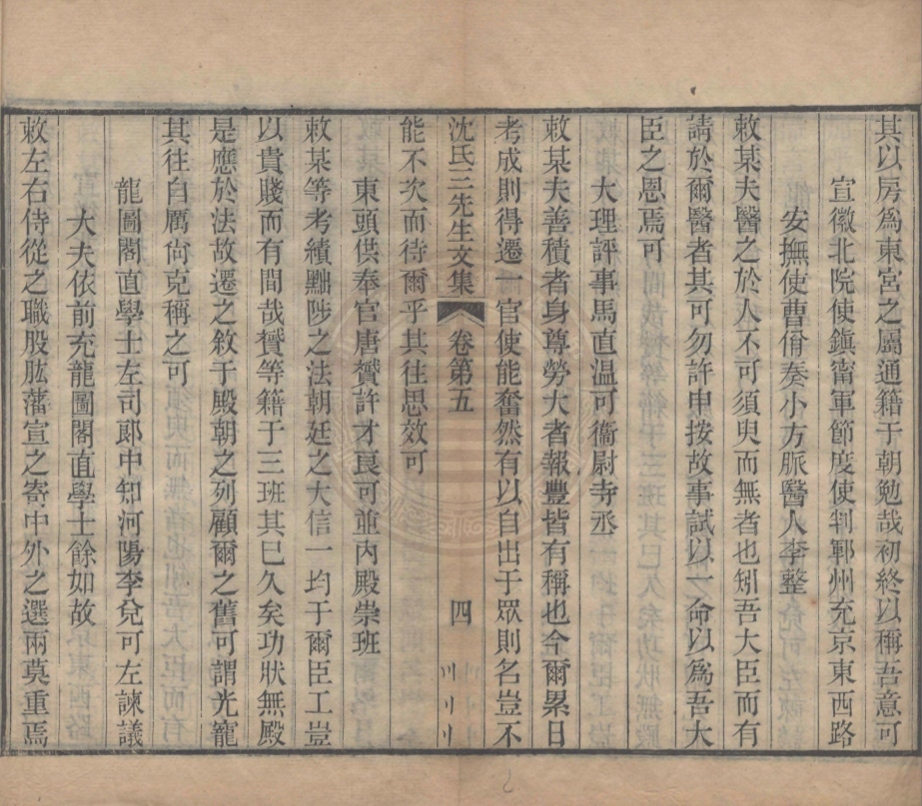 其以房爲東宮之屬通籍于朝勉哉初終以稱吾意可
宣徽北院使鎭甯軍節度使判鄆州充京東西路
安撫使曹佾奏小方脈醫人李整
敕某夫醫之於人不可須臾而無者也矧吾大臣而有
請於爾醫者其可勿許申按故事試以一命以爲吾大
臣之恩焉可
大理評事馬直温可衞尉寺丞
敕某夫善積者身尊勞大者報豐皆有稱也今爾累日
考成則得遷一官使能奮然有以自出于眾則名豈不
沈氏三先生文集 卷第五 四
能不次而待爾乎其往思效可
東頭供奉官唐贇許才良可並內殿崇班
敕某等考績黜陟之法朝廷之大信一均于爾臣工豈
以貴賤而有間哉贇等籍于三班其已久矣功狀無殿
是應於法故遷之敘于殿朝之列顧爾之舊可謂光寵
其往自厲尙克稱之可
龍圖閣直學士左司郎中知河陽李兌可左諫議
大夫依前充龍圖閣直學士餘如故
敕左右侍從之職股肱藩宣之寄中外之選兩莫重焉